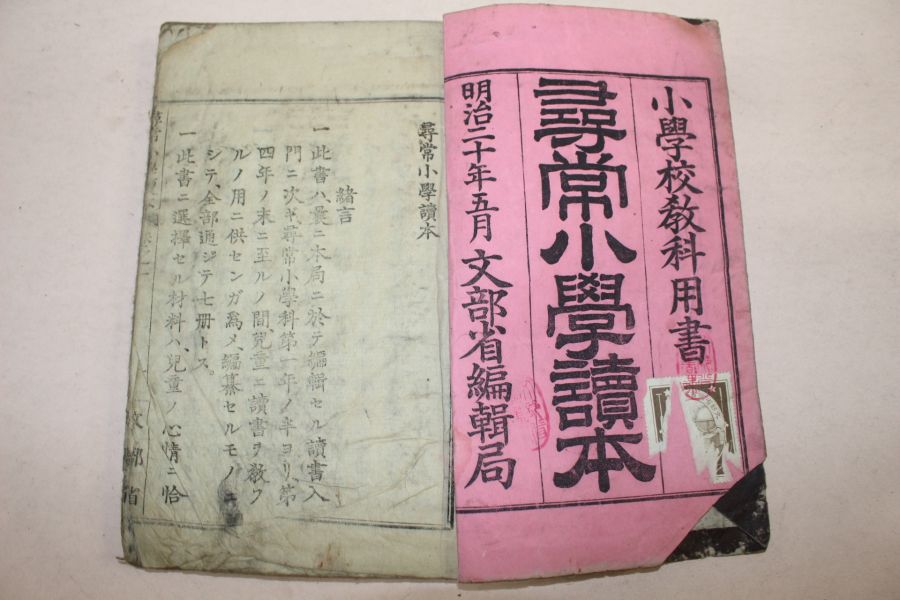 小學校教科用書
尋常小學讀本
明治二十年五月 文部省編輯局
尋常小學讀本
緒言
一 此書ハ、曩ニ本局ニ於テ編輯セル讀書入
門ニ次ギ、尋常小學科第一年ノ半ヨリ、第
四年ノ末ニ至ルノ間、兒童ニ讀書ヲ教フ
ルノ用ニ供センガ爲メ、編纂セルモノニ
シテ、全部通ジテ七册トス。
一 此書ニ選擇セル材料ハ、兒童ノ心情ニ恰
文部省